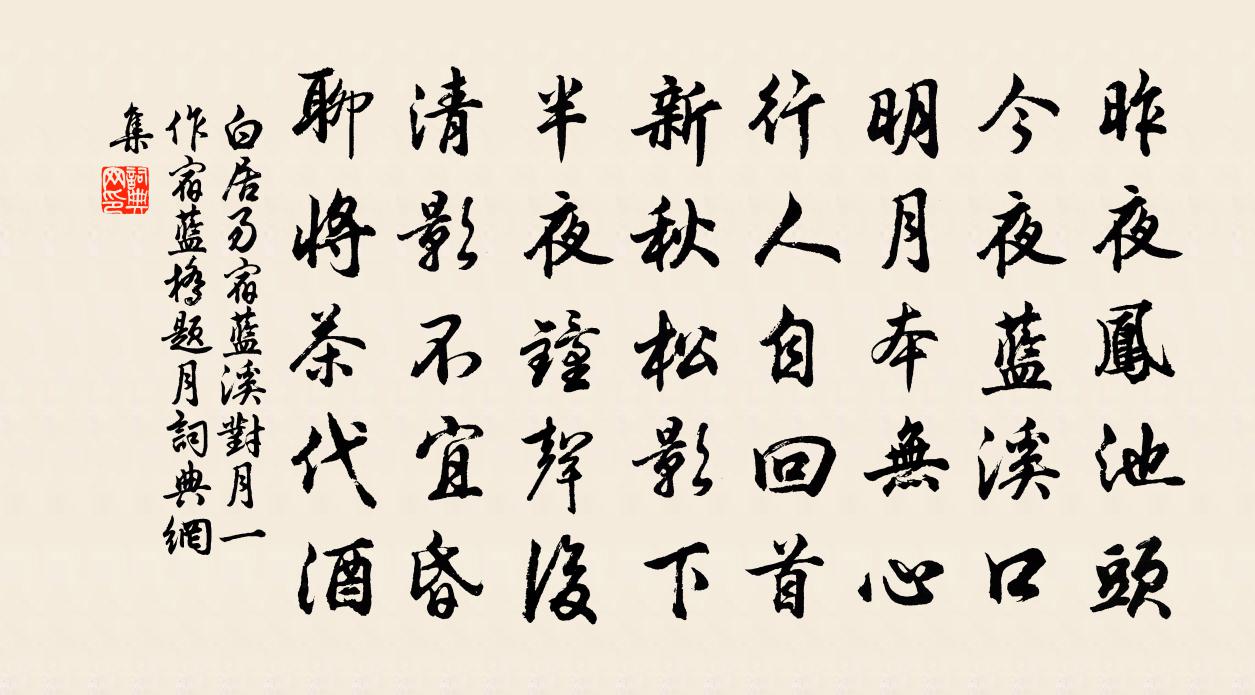 昨夜鳳池頭
今夜藍溪口
明月本無心
行人自回首
新秋松影下
半夜鐘聲後
清影不宜昏
聊將茶代酒
白居易宿藍溪對月一
作宿藍橋題月詞典網
集
詞典
网印